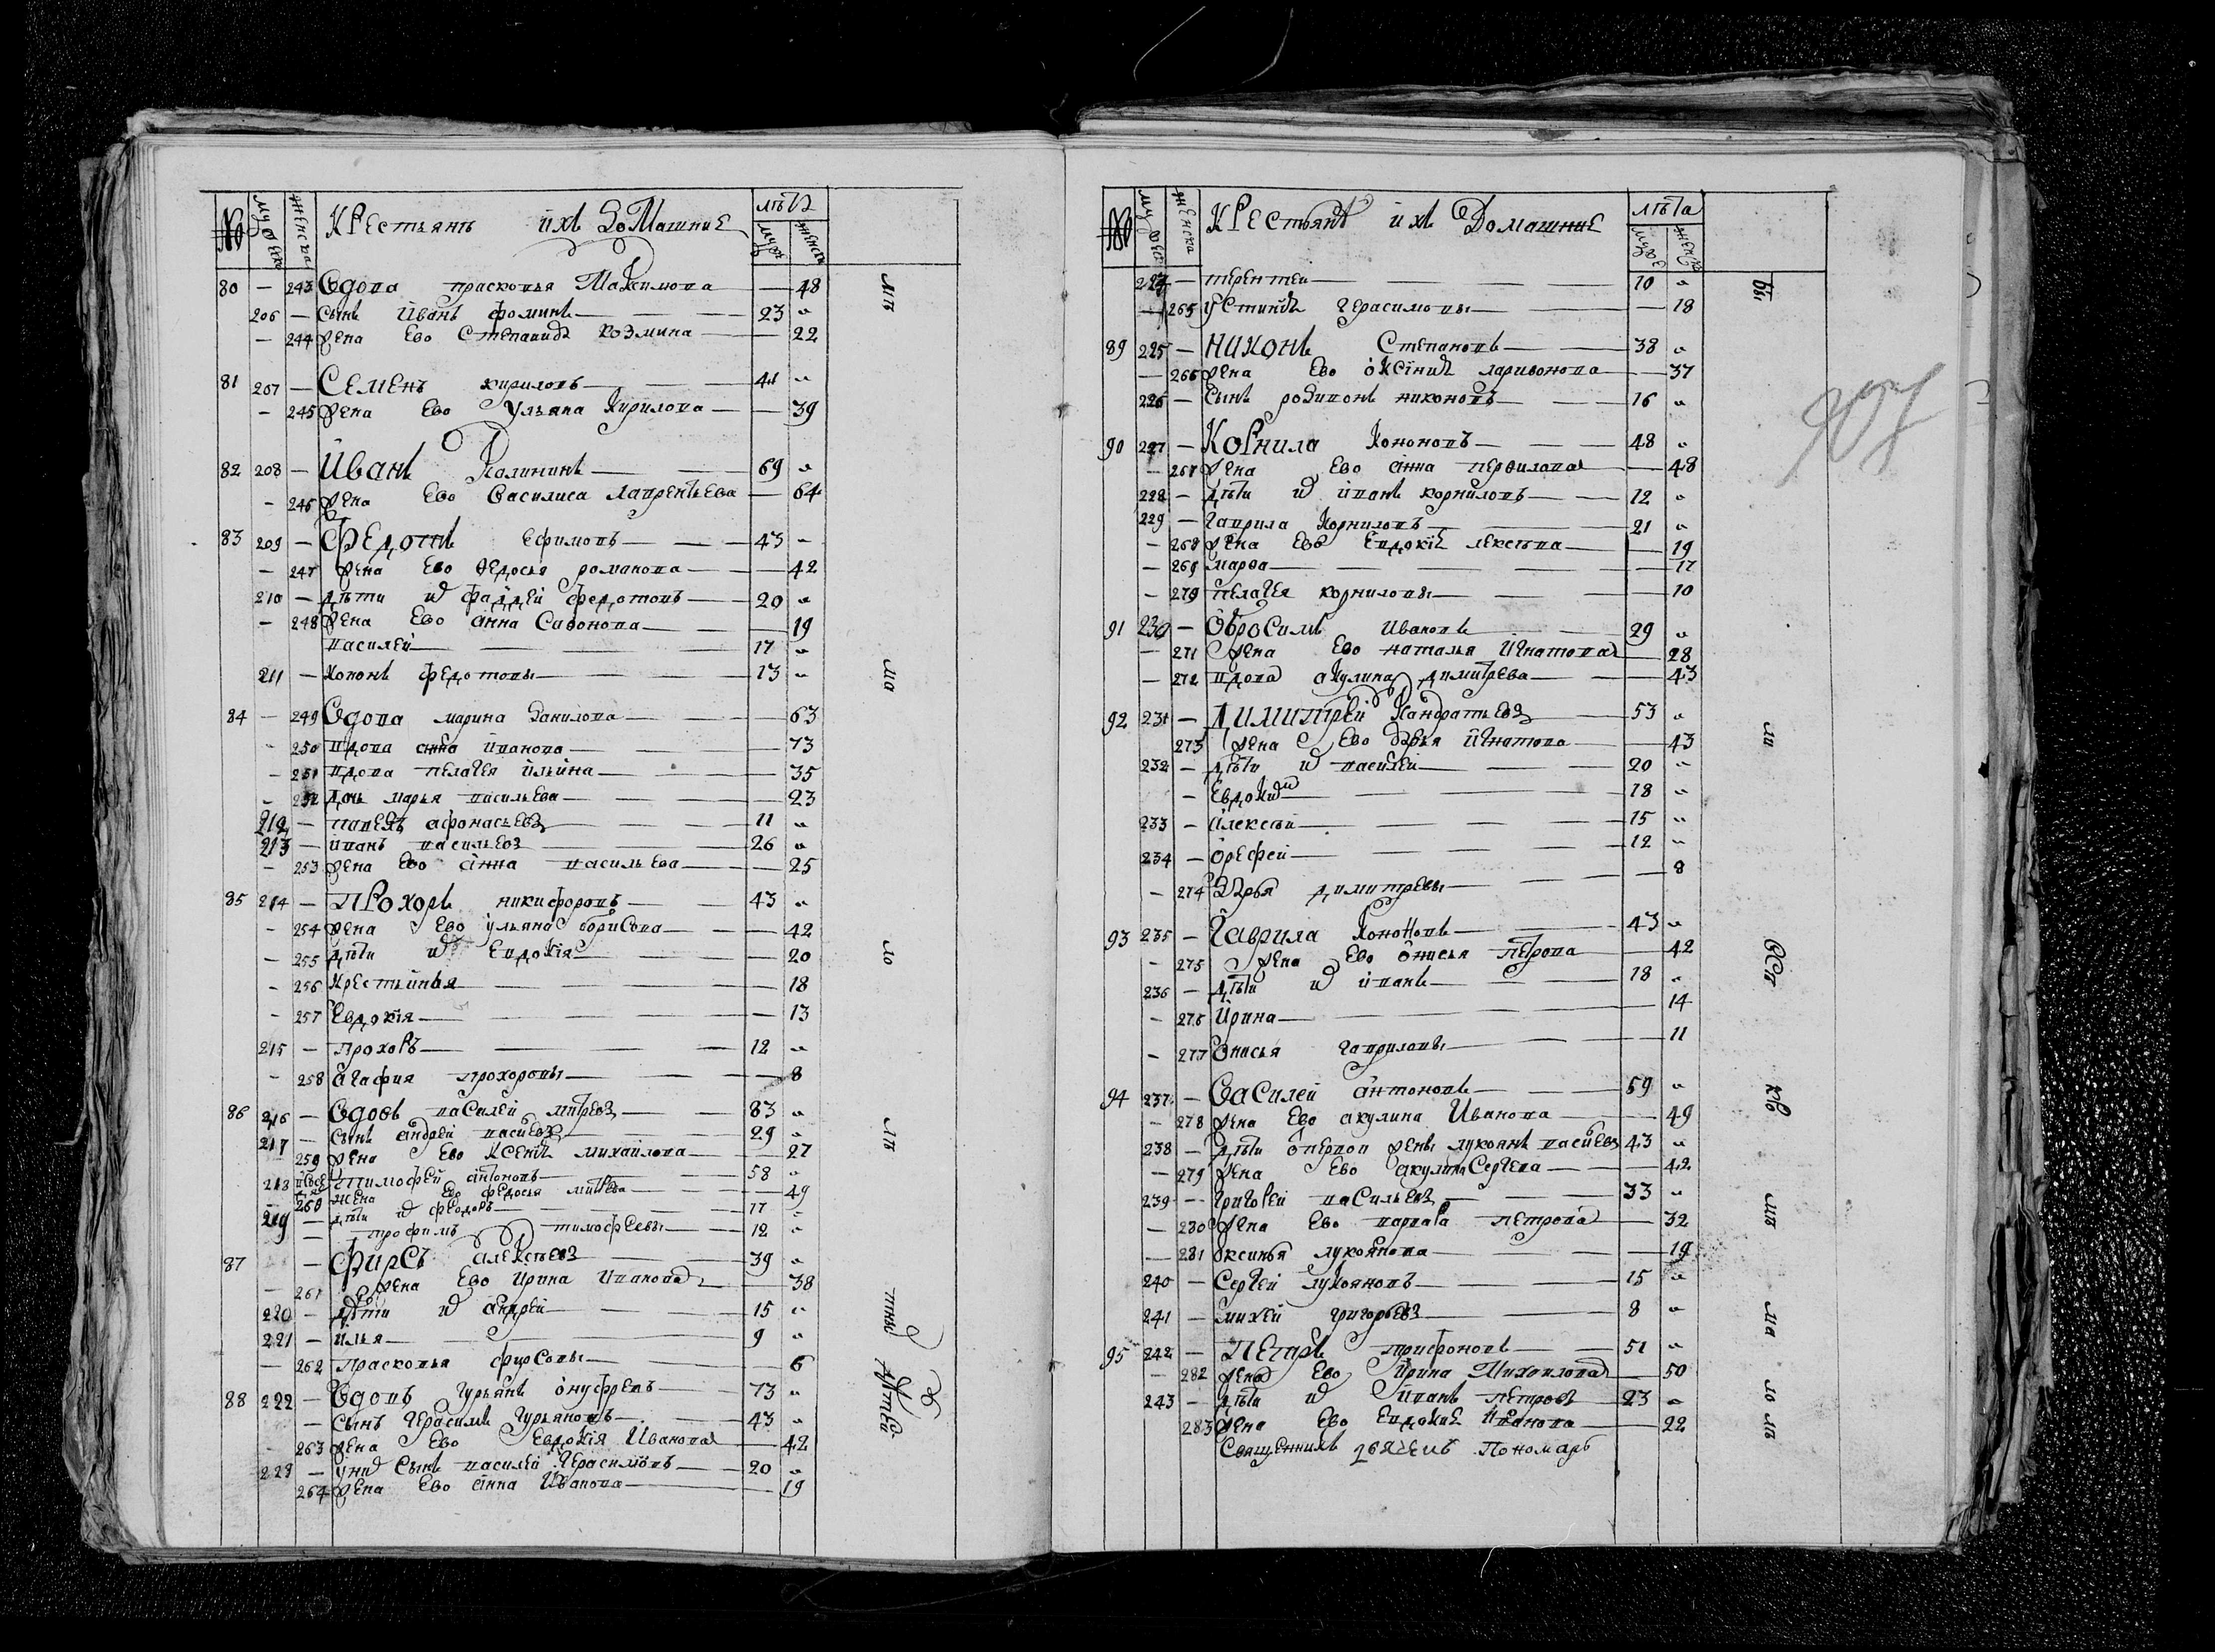 № мужеска женска Крестьянъ и ихъ Домашние лѣта мужс женск
80 — 243 Вдова прасковья Максимова — 48
206 — сынъ Иванъ фоминъ 23 "
— 244 жена Ево Степанида козмина — 22
81 207 — Семенъ кириловъ 41 "
— 245 жена Ево Ульяна Кирилова — 39
82 208 — Иванъ Калининъ 69 "
— 246 жена Ево Василиса лаврентьева — 64
83 209 — Федотъ Ефимовъ 43 —
— 247 жена Ево Ѳедосья романова — 42
210 — дѣти их фаддей федотовъ 20 "
— 248 жена Ево анна Савонова 19
василей 17 "
211 — Конон федотовы 13 "
84 — 249 Вдова марина Данилова 63
— 250 вдова анна иванова — 73
— 251 вдова пелагея ильина — 35
— 252 дочь марья васильева — 23
212 — павелъ афонасьевъ 11 "
213 — иванъ васильевъ 26 "
— 253 жена Ево анна васильева — 25
85 214 — Прохоръ никифоровъ 43 "
— 254 жена Ево ульяна борисова — 42
— 255 дѣти их Евдокія — 20
— 256 Крестинья — 18
— 257 Евдокія — 13
215 — прохоръ 12 "
— 258 агафия прохоровы — 8
86 216 — Вдовъ василей митревъ 83 "
217 — сынъ андрей васильевъ 29 "
— 259 жена Ево Ксения михайлова — 27
218 тимофей антоновъ 58 "
— 260 жена Ево федосья митрева — 49
219 — дѣти их федоръ 17 —
— трофимъ тимофеевы 12 "
87 — Фирсъ алексѣевъ 39 "
— 261 жена Ево ирина иванова 38
220 — дѣти их андрей 15 "
221 — илья 9 "
— 262 прасковья фирсовы — 6
88 222 — Вдовъ гурьянъ онуфревъ 73 "
— сынъ герасимъ гурьяновъ 43 "
263 жена Ево Евдокія Иванова 42
223 — сынъ василей герасимовъ 20 "
264 жена Ево анна Иванова 19
№ мужеска женска Крестьянъ и ихъ Домашние лѣта мужс женск
224 — терентей 10 "
— 265 Устинья герасимовы — 18
89 225 — Никонъ Степановъ 38 "
— 266 жена Ево оксинья ларивонова — 37
226 — сынъ родивонъ никоновъ 16 "
90 227 — Корнила Кононовъ 48 "
— 267 жена Ево анна перфилова — 48
228 — дѣти их иванъ корниловъ 12 "
229 — гаврила корниловъ 21 "
— 268 жена Ево Евдокія алексѣева — 19
— 269 марфа — 17
— 279 пелагея корниловы — 10
91 230 — Обросимъ Ивановъ 29 "
— 271 жена Ево наталья игнатова 28
— 272 вдова акулина димитрева — 43
92 231 — Димитрей Кандратьевъ 53 "
273 жена Ево дарья игнатова — 43
232 — дѣти их василей 20 "
— Евдокимъ 18 "
233 — алексѣй 15 "
234 — орефей 12 "
— 274 Дарья димитревы — 8
93 235 — Гаврила Кононовъ 43 "
— 275 жена Ево онисья петрова — 42
236 — дѣти их иванъ 18 "
— 276 Ирина — 14
— 277 Онисья гавриловы — 11
94 237 — Василей антоновъ 59 "
— 278 жена Ево акулина Иванова — 49
238 — дѣти от первой жены лукоянъ васильевъ 43 "
— 279 жена Ево акулина Сергева — 42
239 — григорей васильевъ 33 "
— 280 жена Ево варвара петрова 32
— 281 оксинья лукоянова — 19
240 — Сергей лукояновъ 15 "
241 — михей григорьевъ 8 "
95 242 — Петръ трифоновъ 51 "
— 282 жена Ево Ирина Михаилова 50
243 — дѣти их иванъ петровъ 23 "
283 жена Ево Евдокия иванова — 22
Священникъ Пономарь